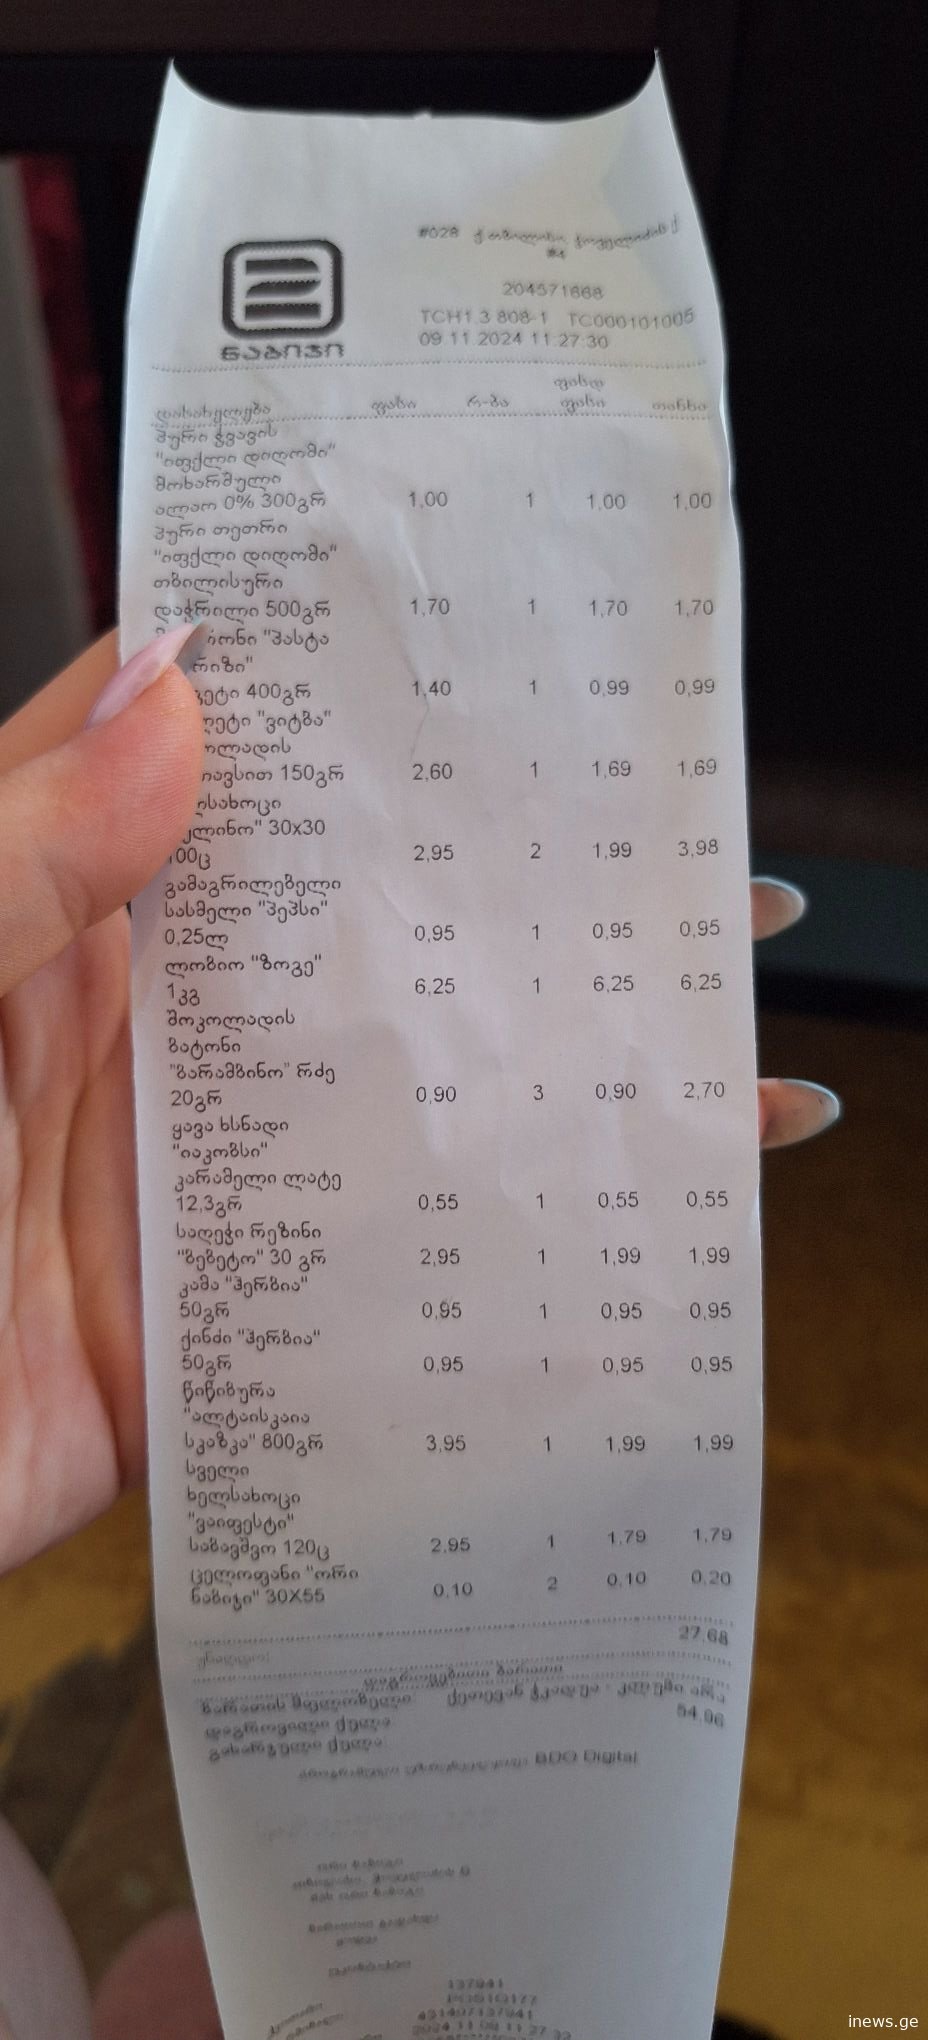 #028 ქ.თბილისი,
#4
204571668
TCH1.3 808-1 TC000101005
09.11.2024 11:27:30
ნაბიჯი
ფასდ
დასახელება ფასი რ-ბა ფასი თანხა
პური ჭვავის
"იფქლი დიღომი"
მოხარშული
ალაო 0% 300გრ 1,00 1 1,00 1,00
პური თეთრი
"იფქლი დიღომი"
თბილისური
დაჭრილი 500გრ 1,70 1 1,70 1,70
"პასტა
400გრ 1,40 1 0,99 0,99
"ვიტბა"
150გრ 2,60 1 1,69 1,69
30x30
100ც 2,95 2 1,99 3,98
გამაგრილებელი
სასმელი "პეპსი"
0,25ლ 0,95 1 0,95 0,95
ლობიო "ზოგე"
1კგ 6,25 1 6,25 6,25
შოკოლადის
ბატონი
"ბარამბინო" რძე
20გრ 0,90 3 0,90 2,70
ყავა ხსნადი
"იაკობსი"
კარამელი ლატე
12,3გრ 0,55 1 0,55 0,55
საღეჭი რეზინი
"ბებეტო" 30 გრ 2,95 1 1,99 1,99
კამა "ჰერბია"
50გრ 0,95 1 0,95 0,95
ქინძი "ჰერბია"
50გრ 0,95 1 0,95 0,95
წიწიბურა
"ალტაისკაია
სკაზკა" 800გრ 3,95 1 1,99 1,99
სველი
ხელსახოცი
"ვაიფესტი"
საბავშვო 120ც 2,95 1 1,79 1,79
ცელოფანი "ორი
ნაბიჯი" 30X55 0,10 2 0,10 0,20
27,68
დაგროვებითი ბარათი
ბარათის მფლობელი:
დაგროვილი ქულა 54,06
გახარჯული ქულა
BDO Digital
137941
inews.ge